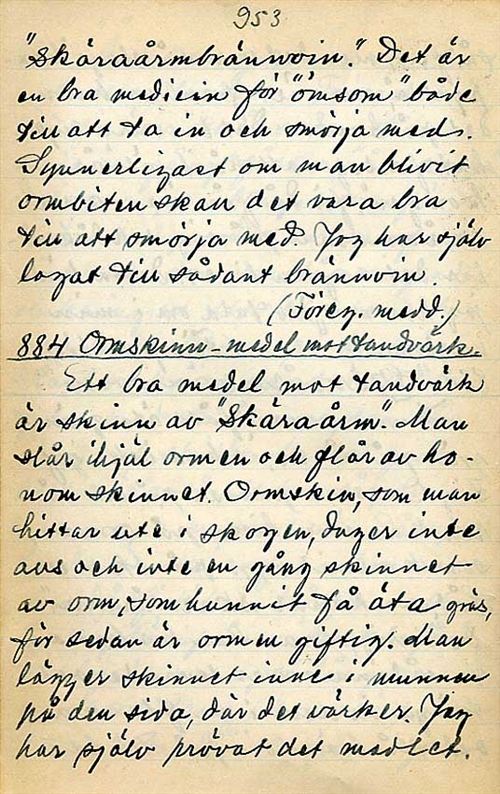 953
"Skäraårmbränwoin." Det är
en bra medicin för "ömsom" både
till att ta in och smörja med.
Synnerligast om man blivit
ormbiten skall det vara bra
till att smörja med. Jag har själv
lagat till sådant bränwoin.
(Föreg. medd.)
884 Ormskinn - medel mot tandvärk.
Ett bra medel mot tandvärk
är skinn av "Skäraårm". Man
slår ihjäl ormen och flår av ho-
nom skinnet. Ormskin, som man
hittar ute i skogen, duger inte
alls och inte en gång skinnet
av orm, som hunnit få äta gräs,
för sedan är ormen giftig. Man
lägger skinnet inne i munnen
på den sida, där det värker. Jag
har själv prövat det medlet.